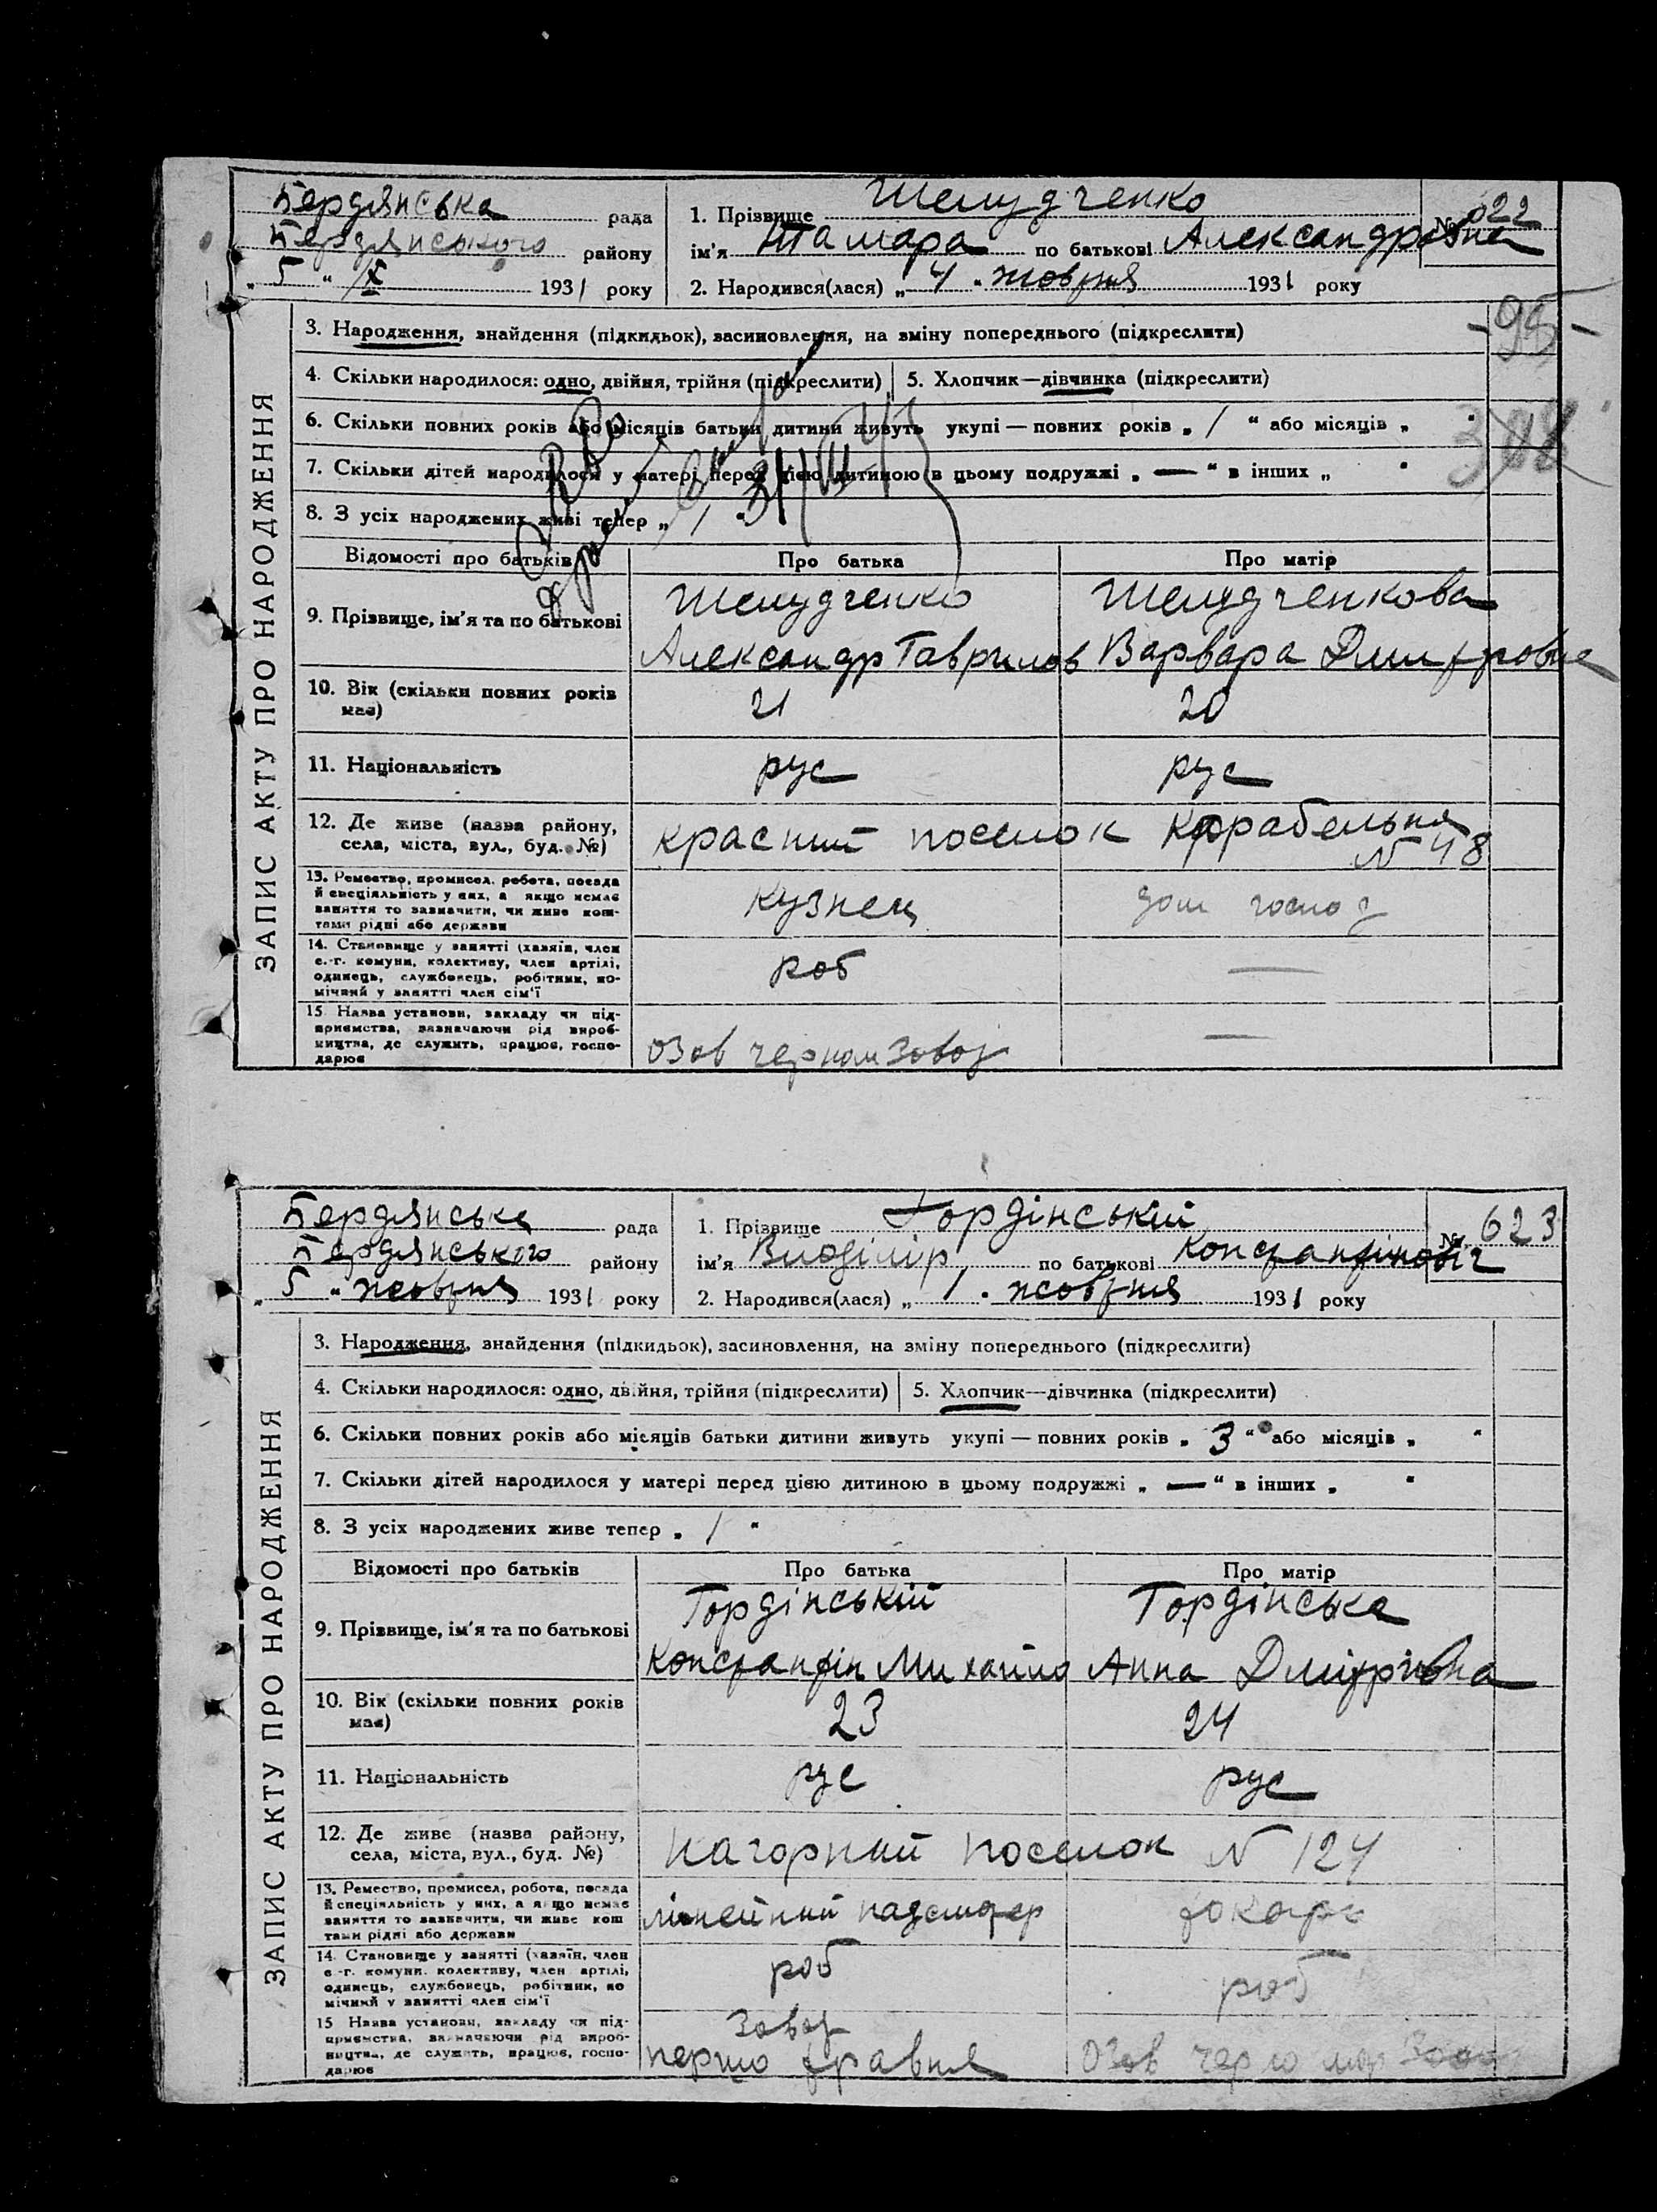 Бердянська рада
Бердянського району
„ 5 “ /X 1931 року
1. Прізвище Шелудченко
ім'я Тамара по батькові Александровна
№ 622
2. Народився(лася) „ 4 “ жовтня 1931 року
ЗАПИС АКТУ ПРО НАРОДЖЕННЯ
3. Народження, знайдення (підкидьок), засиновлення, на зміну попереднього (підкреслити)
- 95 -
4. Скільки народилося: одно, двійня, трійня (підкреслити) 5. Хлопчик—дівчинка (підкреслити)
6. Скільки повних років або місяців батьки дитини живуть укупі — повних років „ 1 “ або місяців „ “
7. Скільки дітей народилося у матері перед цією дитиною в цьому подружжі „ — “ в інших „ “
8. З усіх народжених живі тепер „ 1 “
Відомості про батьків Про батька Про матір
9. Прізвище, ім'я та по батькові Шелудченко Шелудченкова
Александр Гаврилов Варвара Дмитровне
10. Вік (скільки повних років має) 21 20
11. Національність рус рус
12. Де живе (назва району, села, міста, вул., буд. №) Красний поселок Карабельня
N 48
13. Ремество, промисел, робота, посада й спеціяльність у них, а якщо немає заняття то зазначити, чи живе коштами рідні або держави Кузнец дом господ
14. Становище у занятті (хазяїн, член с.-г. комуни, колективу, член артілі, одинець, службовець, робітник, помічний у занятті член сім'ї роб —
15 Назва установи, закладу чи підприємства, зазначаючи рід виробництва, де служить, працює, господарює Озов черном завод —
Бердянська рада
Бердянського району
„ 5 “ жовтня 1931 року
1. Прізвище Гордінський
ім'я Володімір по батькові Константіновіч
№ 623
2. Народився(лася) „ 1 “ жовтня 1931 року
ЗАПИС АКТУ ПРО НАРОДЖЕННЯ
3. Народження, знайдення (підкидьок), засиновлення, на зміну попереднього (підкреслити)
4. Скільки народилося: одно, двійня, трійня (підкреслити) 5. Хлопчик—дівчинка (підкреслити)
6. Скільки повних років або місяців батьки дитини живуть укупі — повних років „ 3 “ або місяців „ “
7. Скільки дітей народилося у матері перед цією дитиною в цьому подружжі „ — “ в інших „ “
8. З усіх народжених живе тепер „ 1 “
Відомості про батьків Про батька Про матір
9. Прізвище, ім'я та по батькові Гордінський Гордінська
Константін Михайло Анна Дмітрівна
10. Вік (скільки повних років має) 23 24
11. Національність рус рус
12. Де живе (назва району, села, міста, вул., буд. №) Нагорний поселок N 124
13. Ремество, промисел, робота, посада й спеціяльність у них, а якщо немає заняття то зазначити, чи живе коштами рідні або держави лінейний надсмотер токарь
14. Становище у занятті (хазяїн, член с.-г. комуни, колективу, член артілі, одинець, службовець, робітник, помічний у занятті член сім'ї роб роб
15 Назва установи, закладу чи підприємства, зазначаючи рід виробництва, де служить, працює, господарює Завод
першо травня Озов черно мор завод